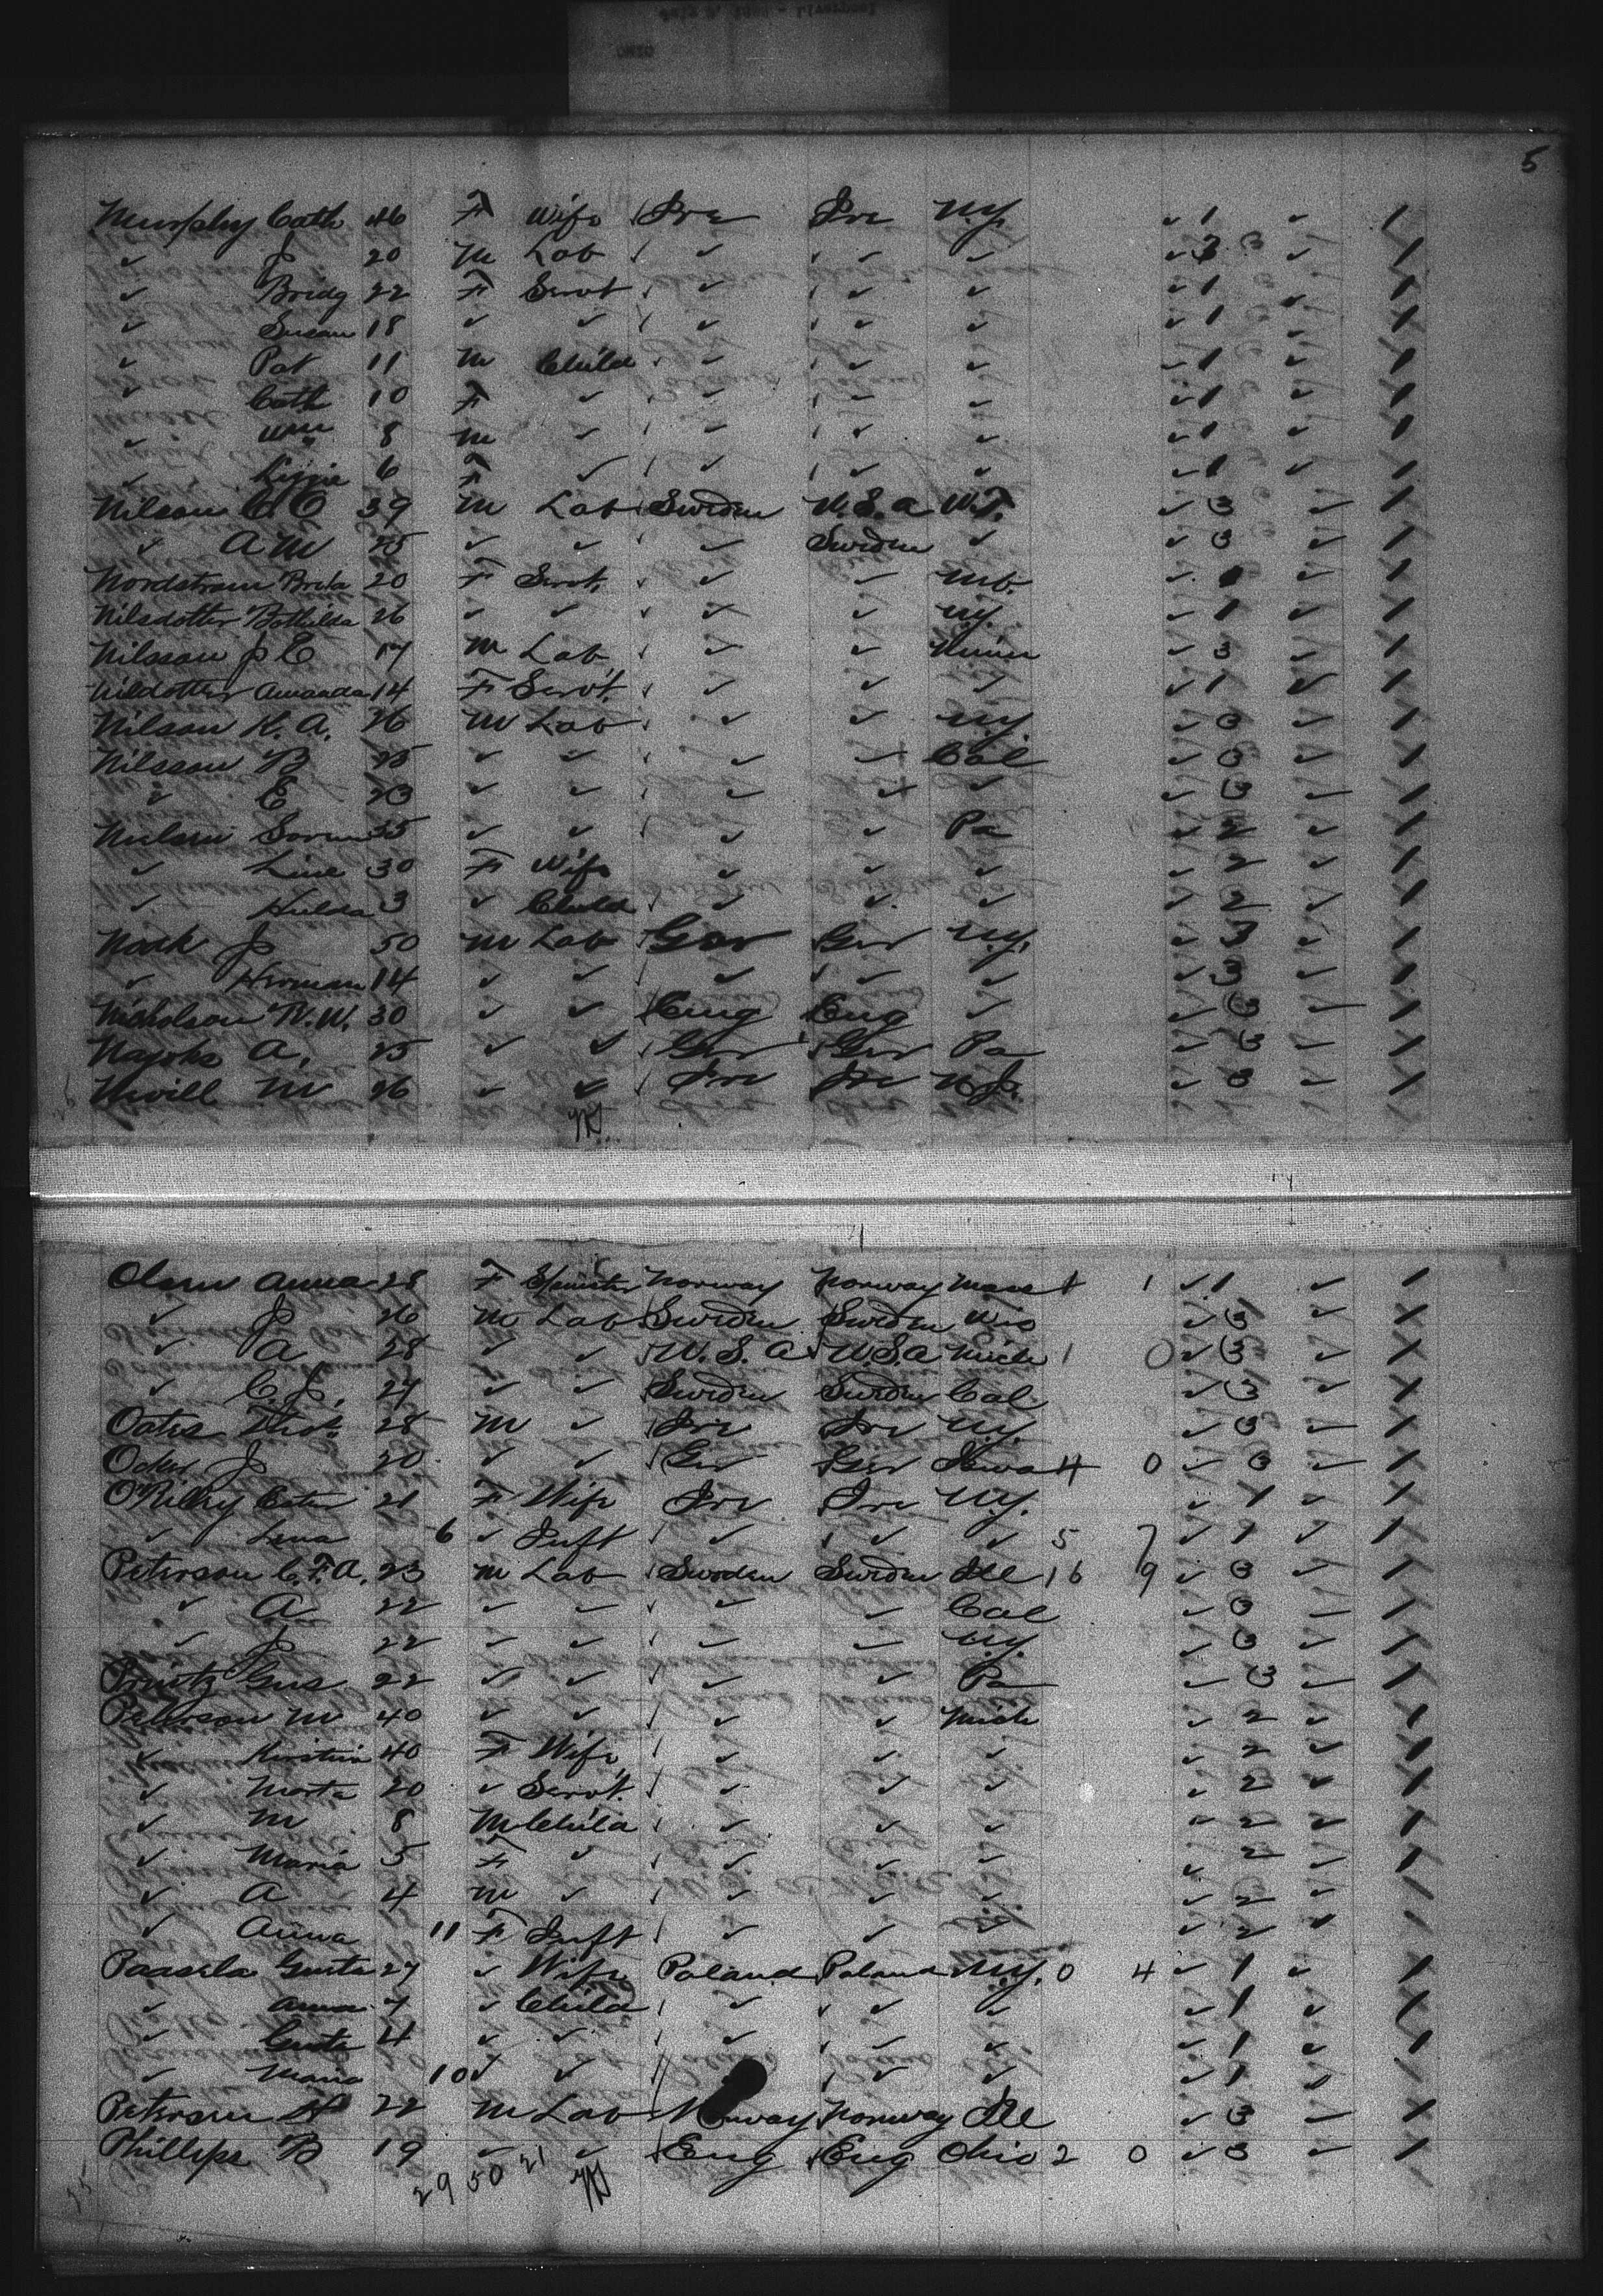 5
Murphy Cath 46 F Wife Ire Ire N.Y. ✓ 1 ✓ 1
✓ J 20 M Lab ✓ ✓ ✓ ✓ 3 ✓ 1
✓ Bridg 22 F Servt ✓ ✓ ✓ ✓ 1 ✓ 1
✓ Susan 18 ✓ ✓ ✓ ✓ ✓ ✓ 1 ✓ 1
✓ Pat 11 M Child ✓ ✓ ✓ ✓ 1 ✓ 1
✓ Cath 10 F ✓ ✓ ✓ ✓ ✓ 1 ✓ 1
✓ Wm 8 M ✓ ✓ ✓ ✓ ✓ 1 ✓ 1
✓ Lizzie 6 F ✓ ✓ ✓ ✓ ✓ 1 ✓ 1
Nilson C.O 39 M Lab Sweden U.S.a W.T. ✓ 3 ✓ 1
✓ A M 25 ✓ ✓ ✓ Sweden ✓ ✓ 3 ✓ 1
Nordstrom Brita 20 F Servt. ✓ ✓ Mo. ✓ 1 ✓ 1
Nilsdotter Bothilda 26 ✓ ✓ ✓ ✓ N.Y. ✓ 1 ✓ 1
Nilsson J E 17 M Lab ✓ ✓ Minn ✓ 3 ✓ 1
Nildotter Amanda 14 F Servt. ✓ ✓ ✓ ✓ 1 ✓ 1
Nilson K. A. 26 M Lab ✓ ✓ N.Y. ✓ 3 ✓ 1
Nilsson B 25 ✓ ✓ ✓ ✓ Cal ✓ 3 ✓ 1
✓ E 23 ✓ ✓ ✓ ✓ ✓ ✓ 3 ✓ 1
Nielsen Soren 35 ✓ ✓ ✓ ✓ Pa ✓ 2 ✓ 1
✓ Line 30 F Wife ✓ ✓ ✓ ✓ 2 ✓ 1
✓ Hulda 3 ✓ Child ✓ ✓ ✓ ✓ 2 ✓ 1
Noak J 50 M Lab Ger Ger N.Y. ✓ 3 ✓ 1
✓ Herman 14 ✓ ✓ ✓ ✓ ✓ ✓ 3 ✓ 1
Nicholson R.W. 30 ✓ ✓ Eng Eng ✓ ✓ 3 ✓ 1
A. 25 ✓ ✓ Ger Ger Pa ✓ 3 ✓ 1
Nevill M 26 ✓ ✓ Ire Ire N.J. ✓ 3 ✓ 1
Olsen Anna 28 F Spinster Norway Norway Mass 1 1 ✓ 1 ✓ 1
✓ J 26 M Lab Sweden Sweden Wis ✓ 3 ✓ 1
✓ A 28 ✓ ✓ U.S.A U.S.a Mich 1 0 ✓ 3 ✓ 1
✓ C.J. 27 ✓ ✓ Sweden Sweden Cal ✓ 3 ✓ 1
Oates Thos. 28 M ✓ Ire Ire N.Y. ✓ 3 ✓ 1
J 20 ✓ ✓ Ger Ger Iowa 4 0 ✓ 3 ✓ 1
O'Rilley 21 F Wife Ire Ire N.Y. ✓ 1 ✓ 1
✓ Lena 6 ✓ Inft ✓ ✓ ✓ 5 7 ✓ 1 ✓ 1
Peterson C.F.A. 23 M Lab Sweden Sweden Ill 16 9 ✓ 3 ✓ 1
✓ A 22 ✓ ✓ ✓ ✓ Cal ✓ 3 ✓ 1
✓ J 22 ✓ ✓ ✓ ✓ N.Y. ✓ 3 ✓ 1
Printz Gus 22 ✓ ✓ ✓ ✓ Pa ✓ 3 ✓ 1
Pehrson M 40 ✓ ✓ ✓ ✓ Mich ✓ 2 ✓ 1
✓ Kerstina 40 F Wife ✓ ✓ ✓ ✓ 2 ✓ 1
✓ Marta 20 ✓ Servt. ✓ ✓ ✓ ✓ 2 ✓ 1
✓ M 8 M Child ✓ ✓ ✓ ✓ 2 ✓ 1
✓ Maria 5 F ✓ ✓ ✓ ✓ ✓ 2 ✓ 1
✓ A 4 M ✓ ✓ ✓ ✓ ✓ 2 ✓ 1
✓ Anna 11 F Inft ✓ ✓ ✓ ✓ 2 ✓ 1
Paasela Gusta 27 ✓ Wife Poland Poland N.Y. 0 4 ✓ 1 ✓ 1
✓ Anna 7 ✓ Child ✓ ✓ ✓ ✓ 1 ✓ 1
✓ Gusta 4 ✓ ✓ ✓ ✓ ✓ ✓ 1 ✓ 1
✓ Maria 10 ✓ ✓ ✓ ✓ ✓ 1 ✓ 1
Petersen H 22 M Lab Norway Norway Ill ✓ 3 ✓ 1
Phillips B 19 ✓ ✓ Eng Eng Ohio 2 0 ✓ 3 ✓ 1
29 50 21